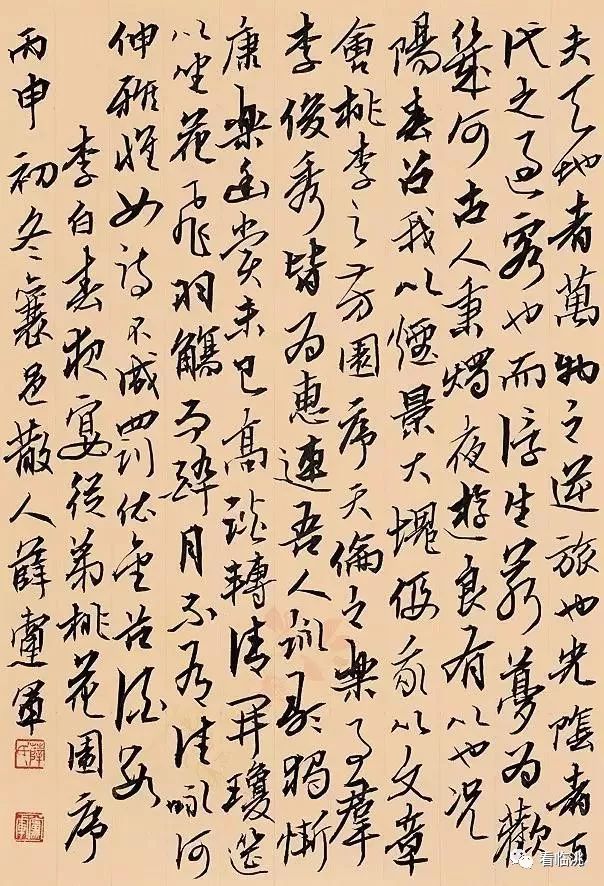 夫天地者萬物之逆旅也光陰者百
代之過客也而浮生若夢為歡
幾何古人秉燭夜遊良有以也況
陽春召我以煙景大塊假我以文章
會桃李之芳園序天倫之樂事羣
李俊秀皆為惠連吾人詠歌獨慚
康樂幽賞未已高談轉清開瓊筵
以坐花飛羽觴而醉月不有佳詠何
伸雅懷如詩不成罰依金谷酒數
李白春夜宴從弟桃花園序
丙申初冬襄邑散人薛憲軍
看临洮